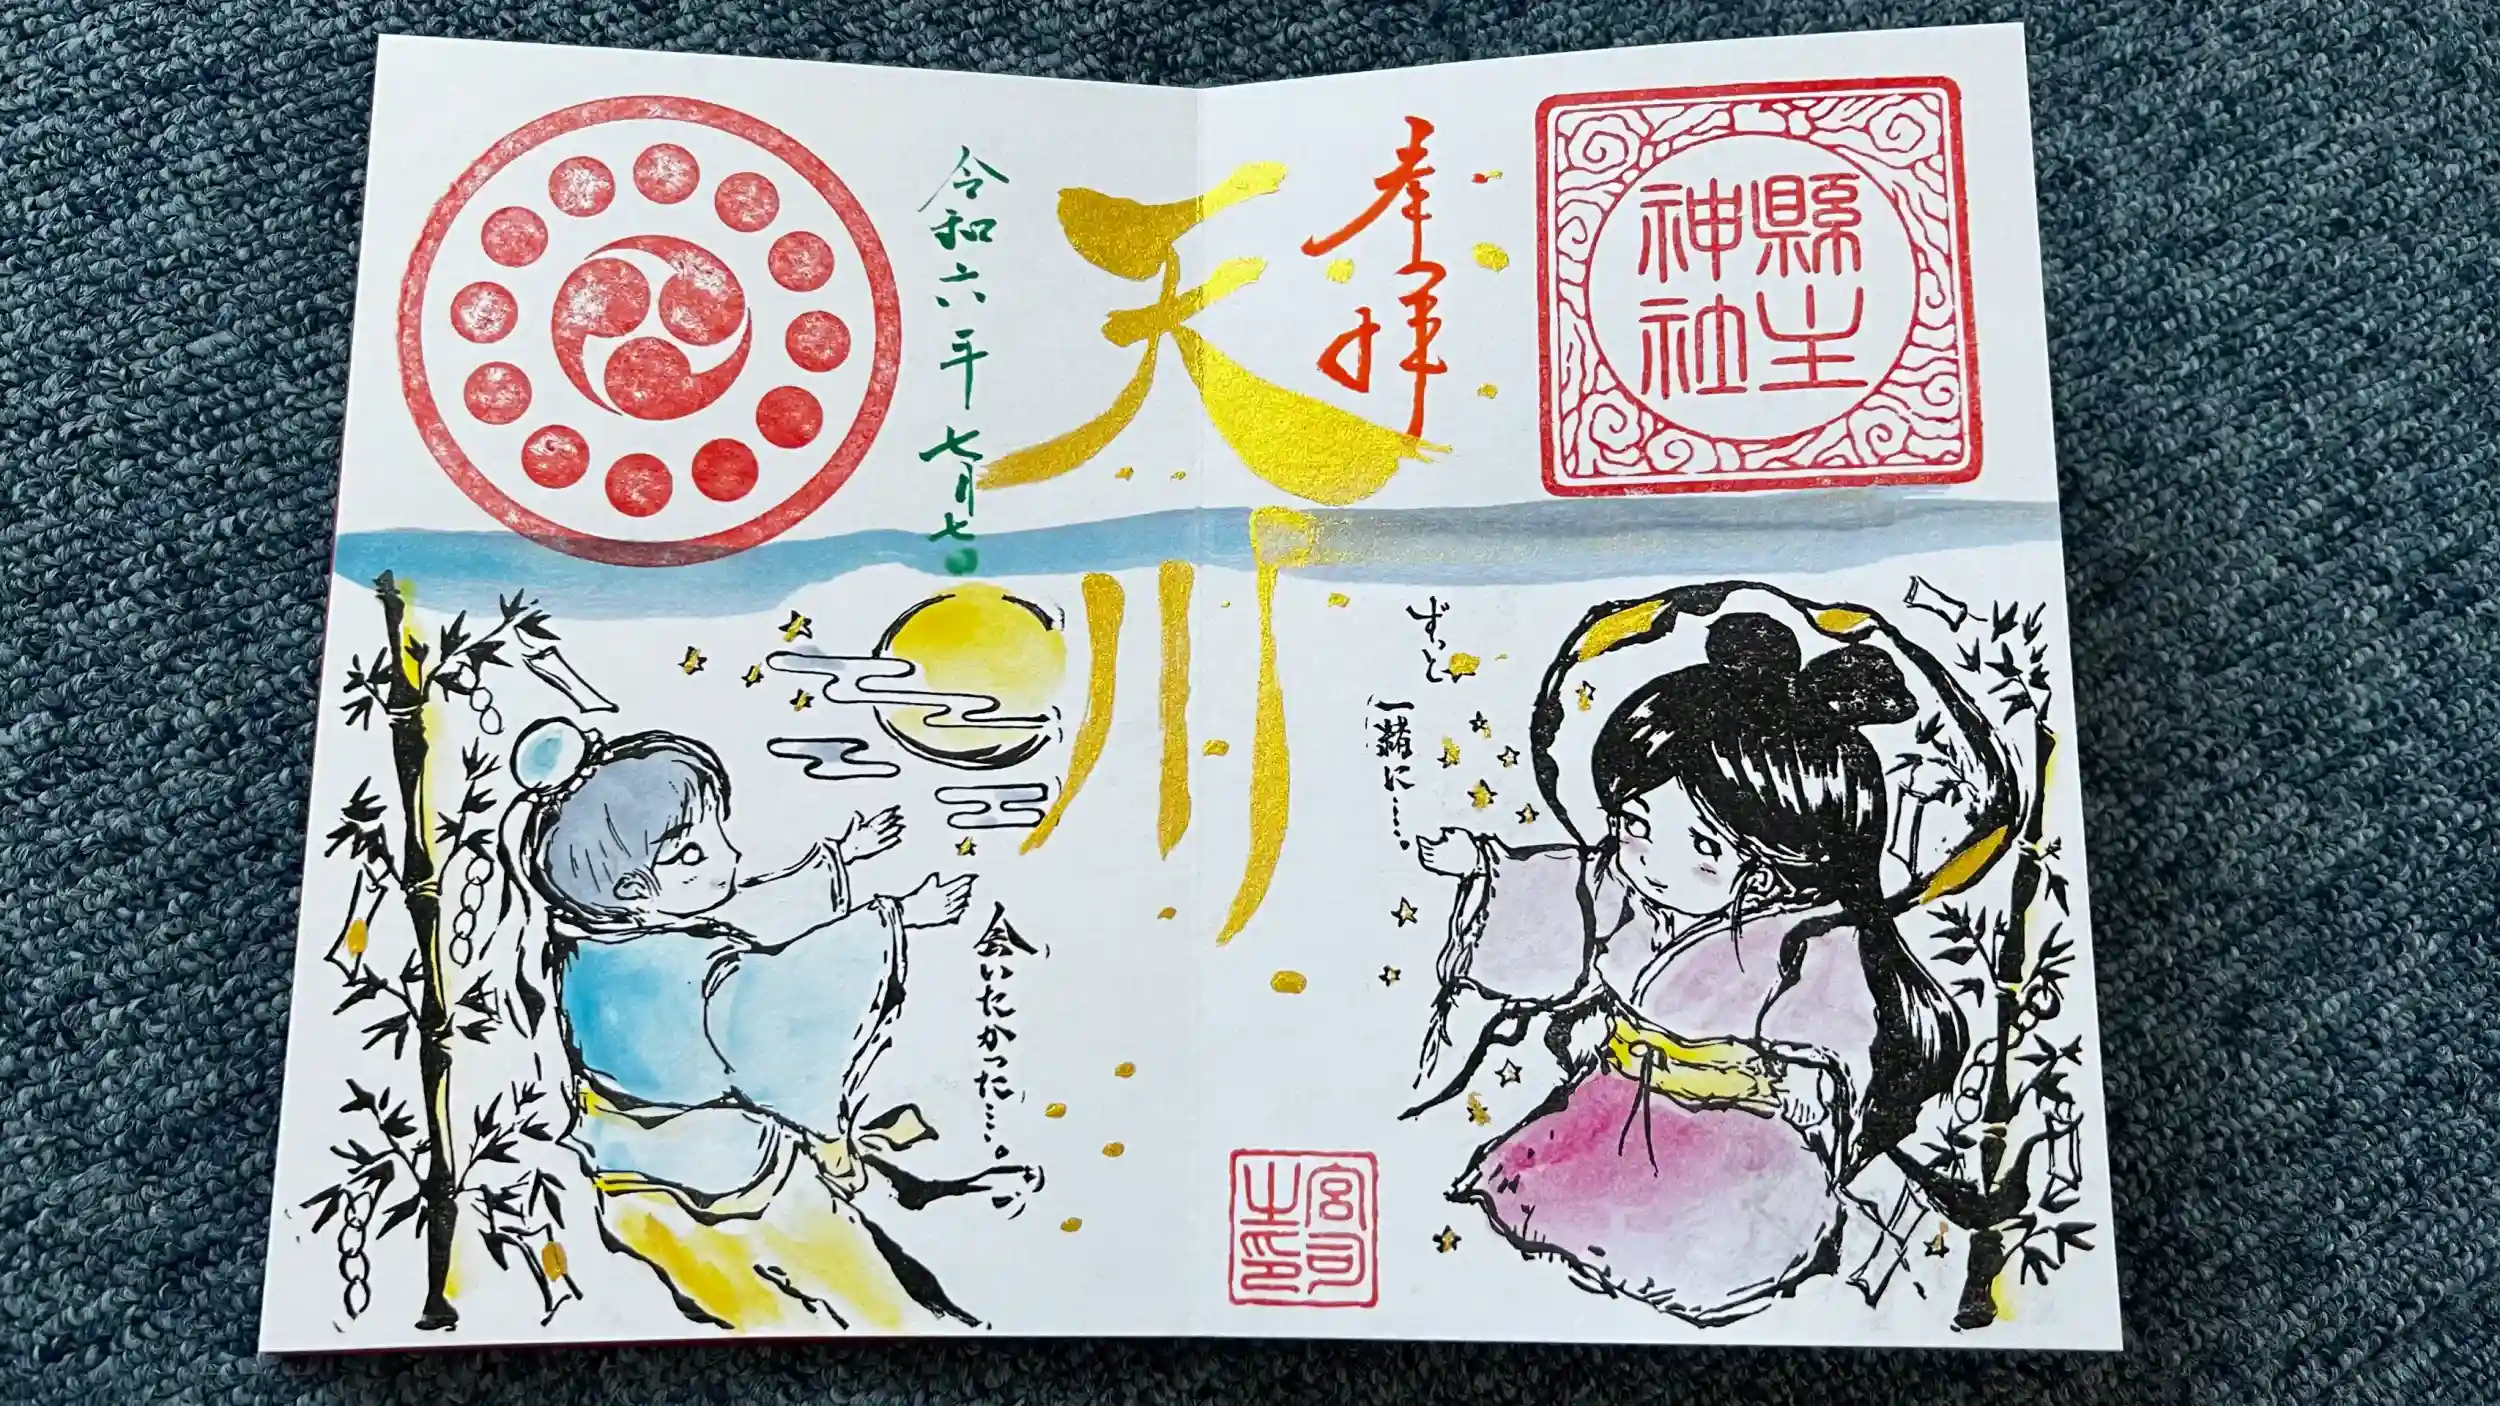 縣主
神社
奉拝
天川
令和六年七月七日
ずっと
一緒に……。
会いたかった……。
宮司
之印